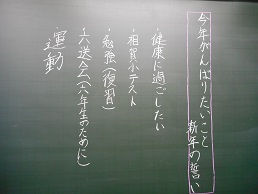 今年がんばりたいこと
新年の誓い
健康に過ごしたい
・相賀小テスト
・勉強(復習)
・六送会(六年生のために)
運動